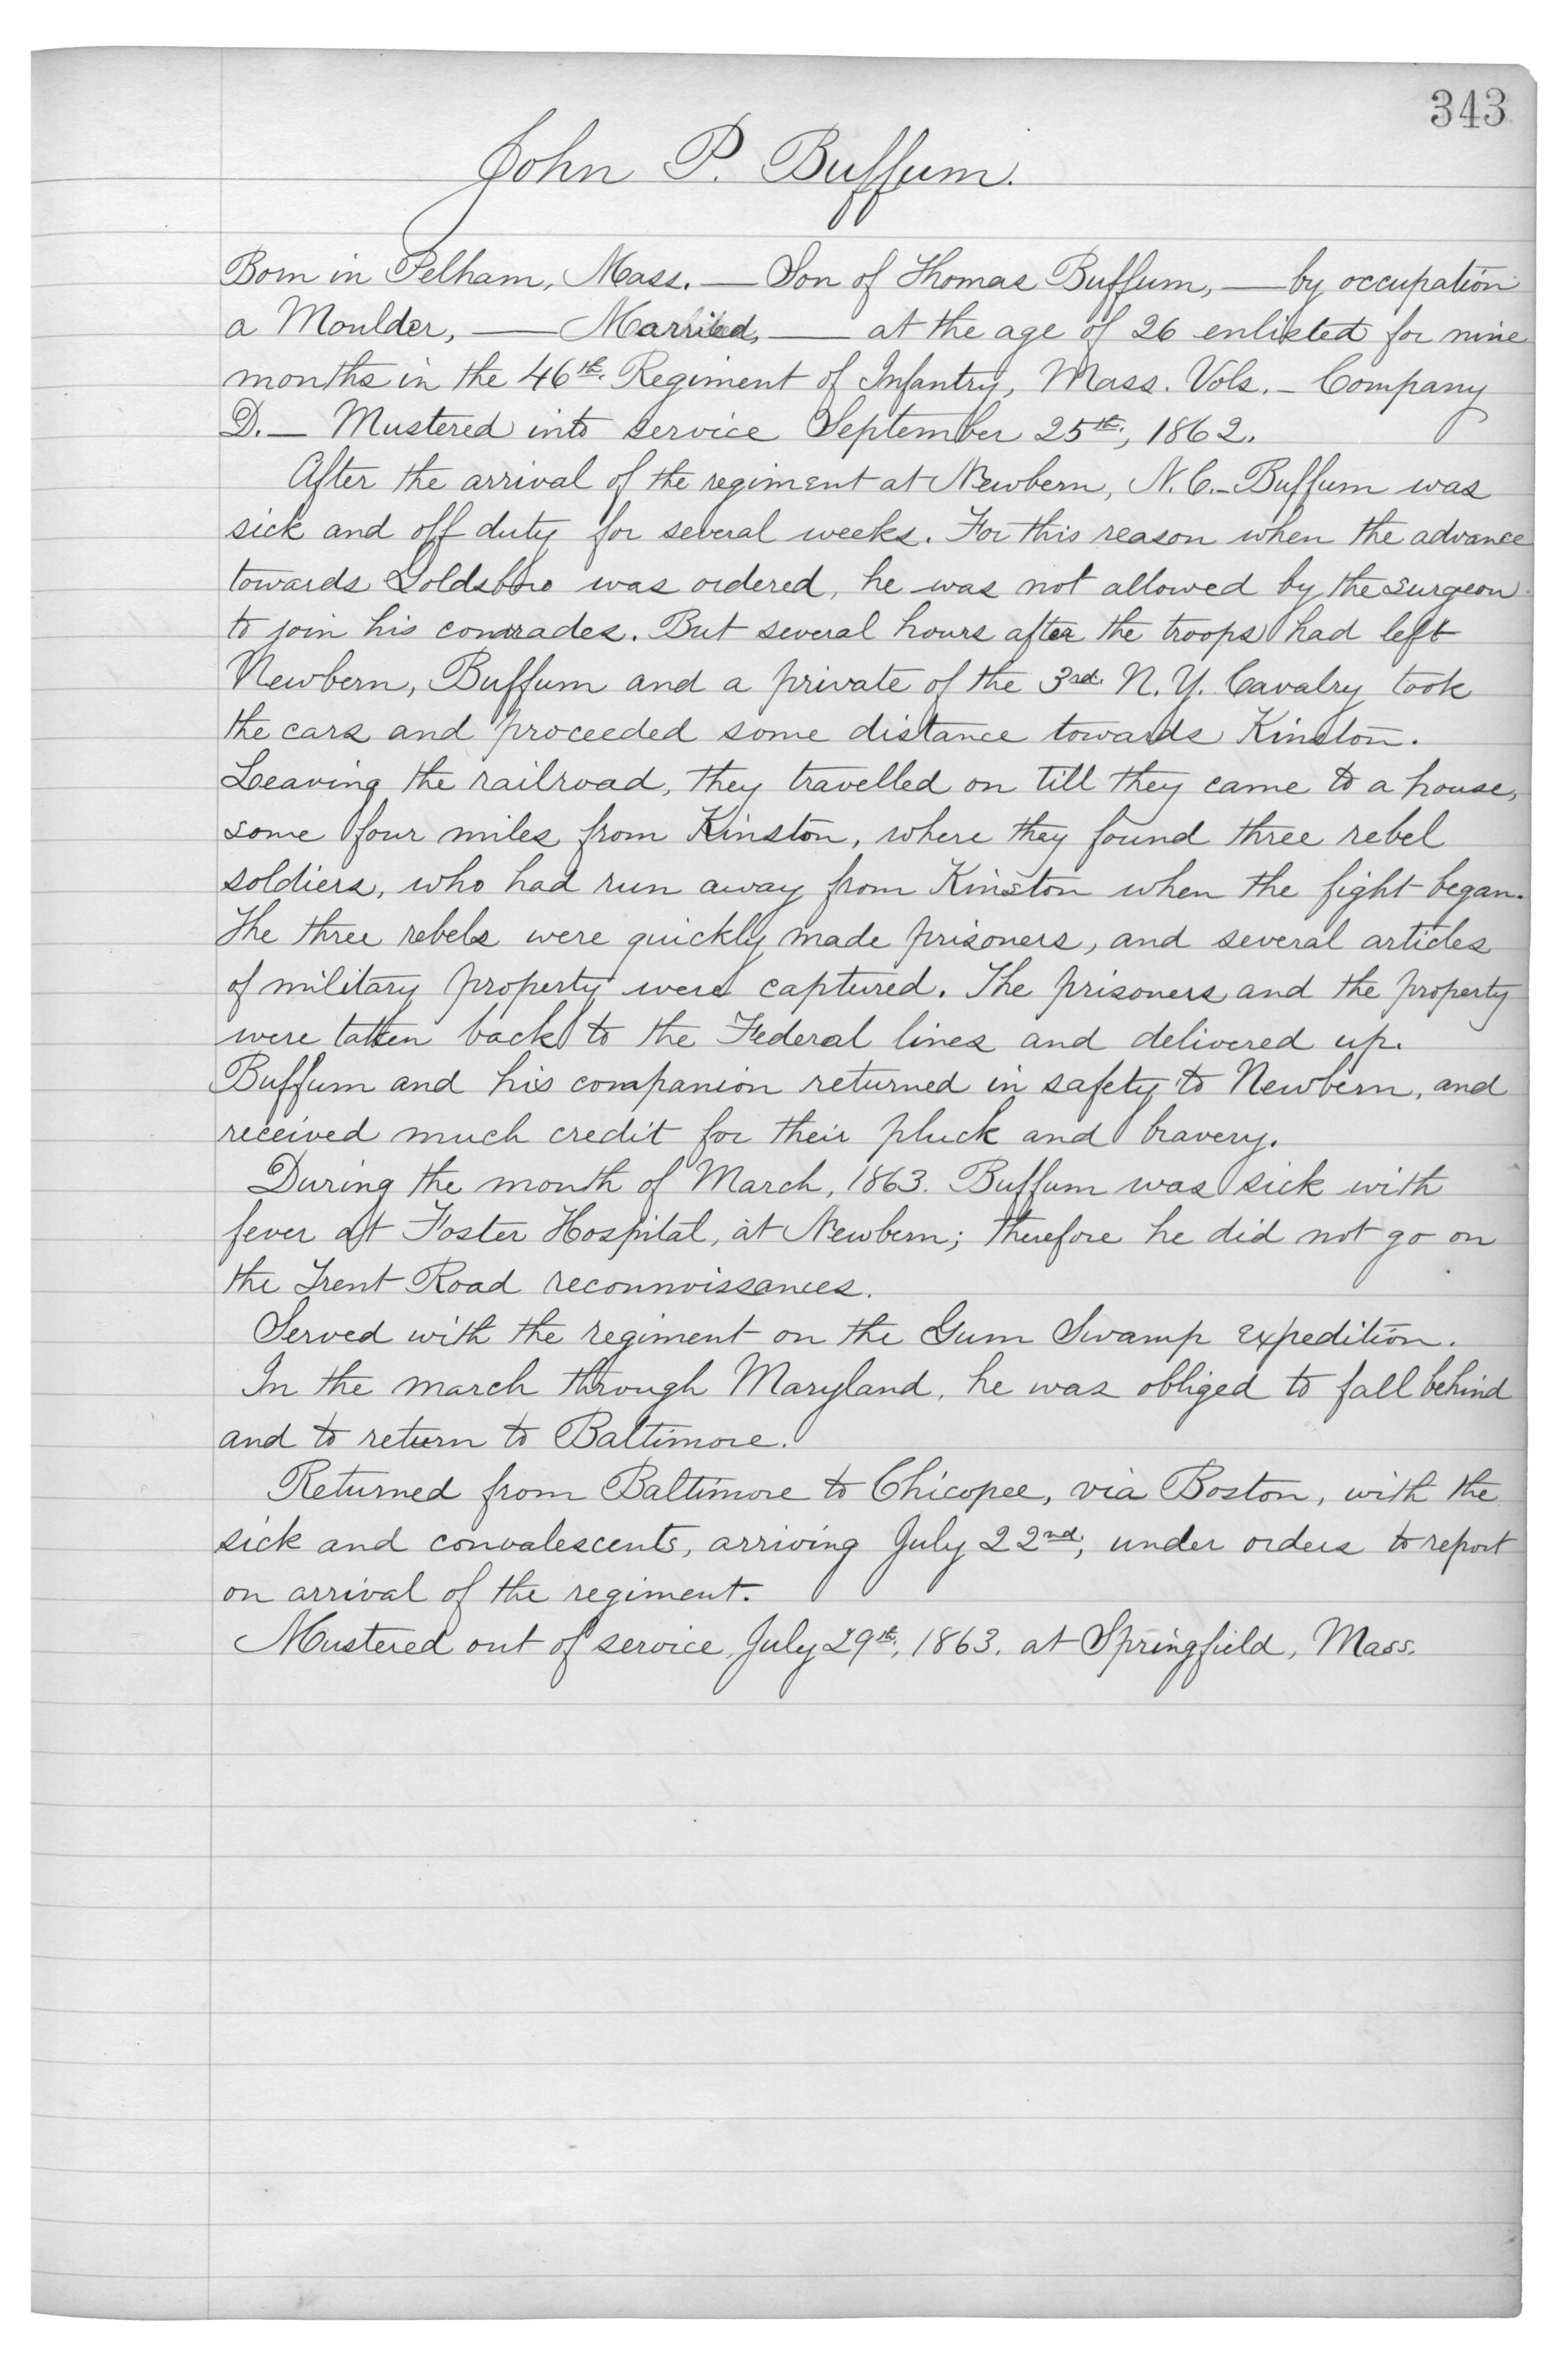 343
John P. Buffum.
Born in Pelham, Mass. — Son of Thomas Buffum, — by occupation
a Moulder, — Married, — at the age of 26 enlisted for nine
months in the 46th. Regiment of Infantry, Mass. Vols. — Company
D. — Mustered into service September 25th, 1862.
After the arrival of the regiment at Newbern, N.C. — Buffum was
sick and off duty for several weeks. For this reason when the advance
towards Goldsboro was ordered, he was not allowed by the surgeon
to join his comrades. But several hours after the troops had left
Newbern, Buffum and a private of the 3rd. N.Y. Cavalry took
the cars and proceeded some distance towards Kinston.
Leaving the railroad, they travelled on till they came to a house,
some four miles from Kinston, where they found three rebel
soldiers, who had run away from Kinston when the fight began.
The three rebels were quickly made prisoners, and several articles
of military property were captured. The prisoners and the property
were taken back to the Federal lines and delivered up.
Buffum and his companion returned in safety to Newbern, and
received much credit for their pluck and bravery.
During the month of March, 1863. Buffum was sick with
fever at Foster Hospital, at Newbern; therefore he did not go on
the Trent Road reconnoissances.
Served with the regiment on the Gum Swamp expedition.
In the march through Maryland, he was obliged to fall behind
and to return to Baltimore.
Returned from Baltimore to Chicopee, via Boston, with the
sick and convalescents, arriving July 22nd, under orders to report
on arrival of the regiment.
Mustered out of service, July 29th, 1863. at Springfield, Mass.